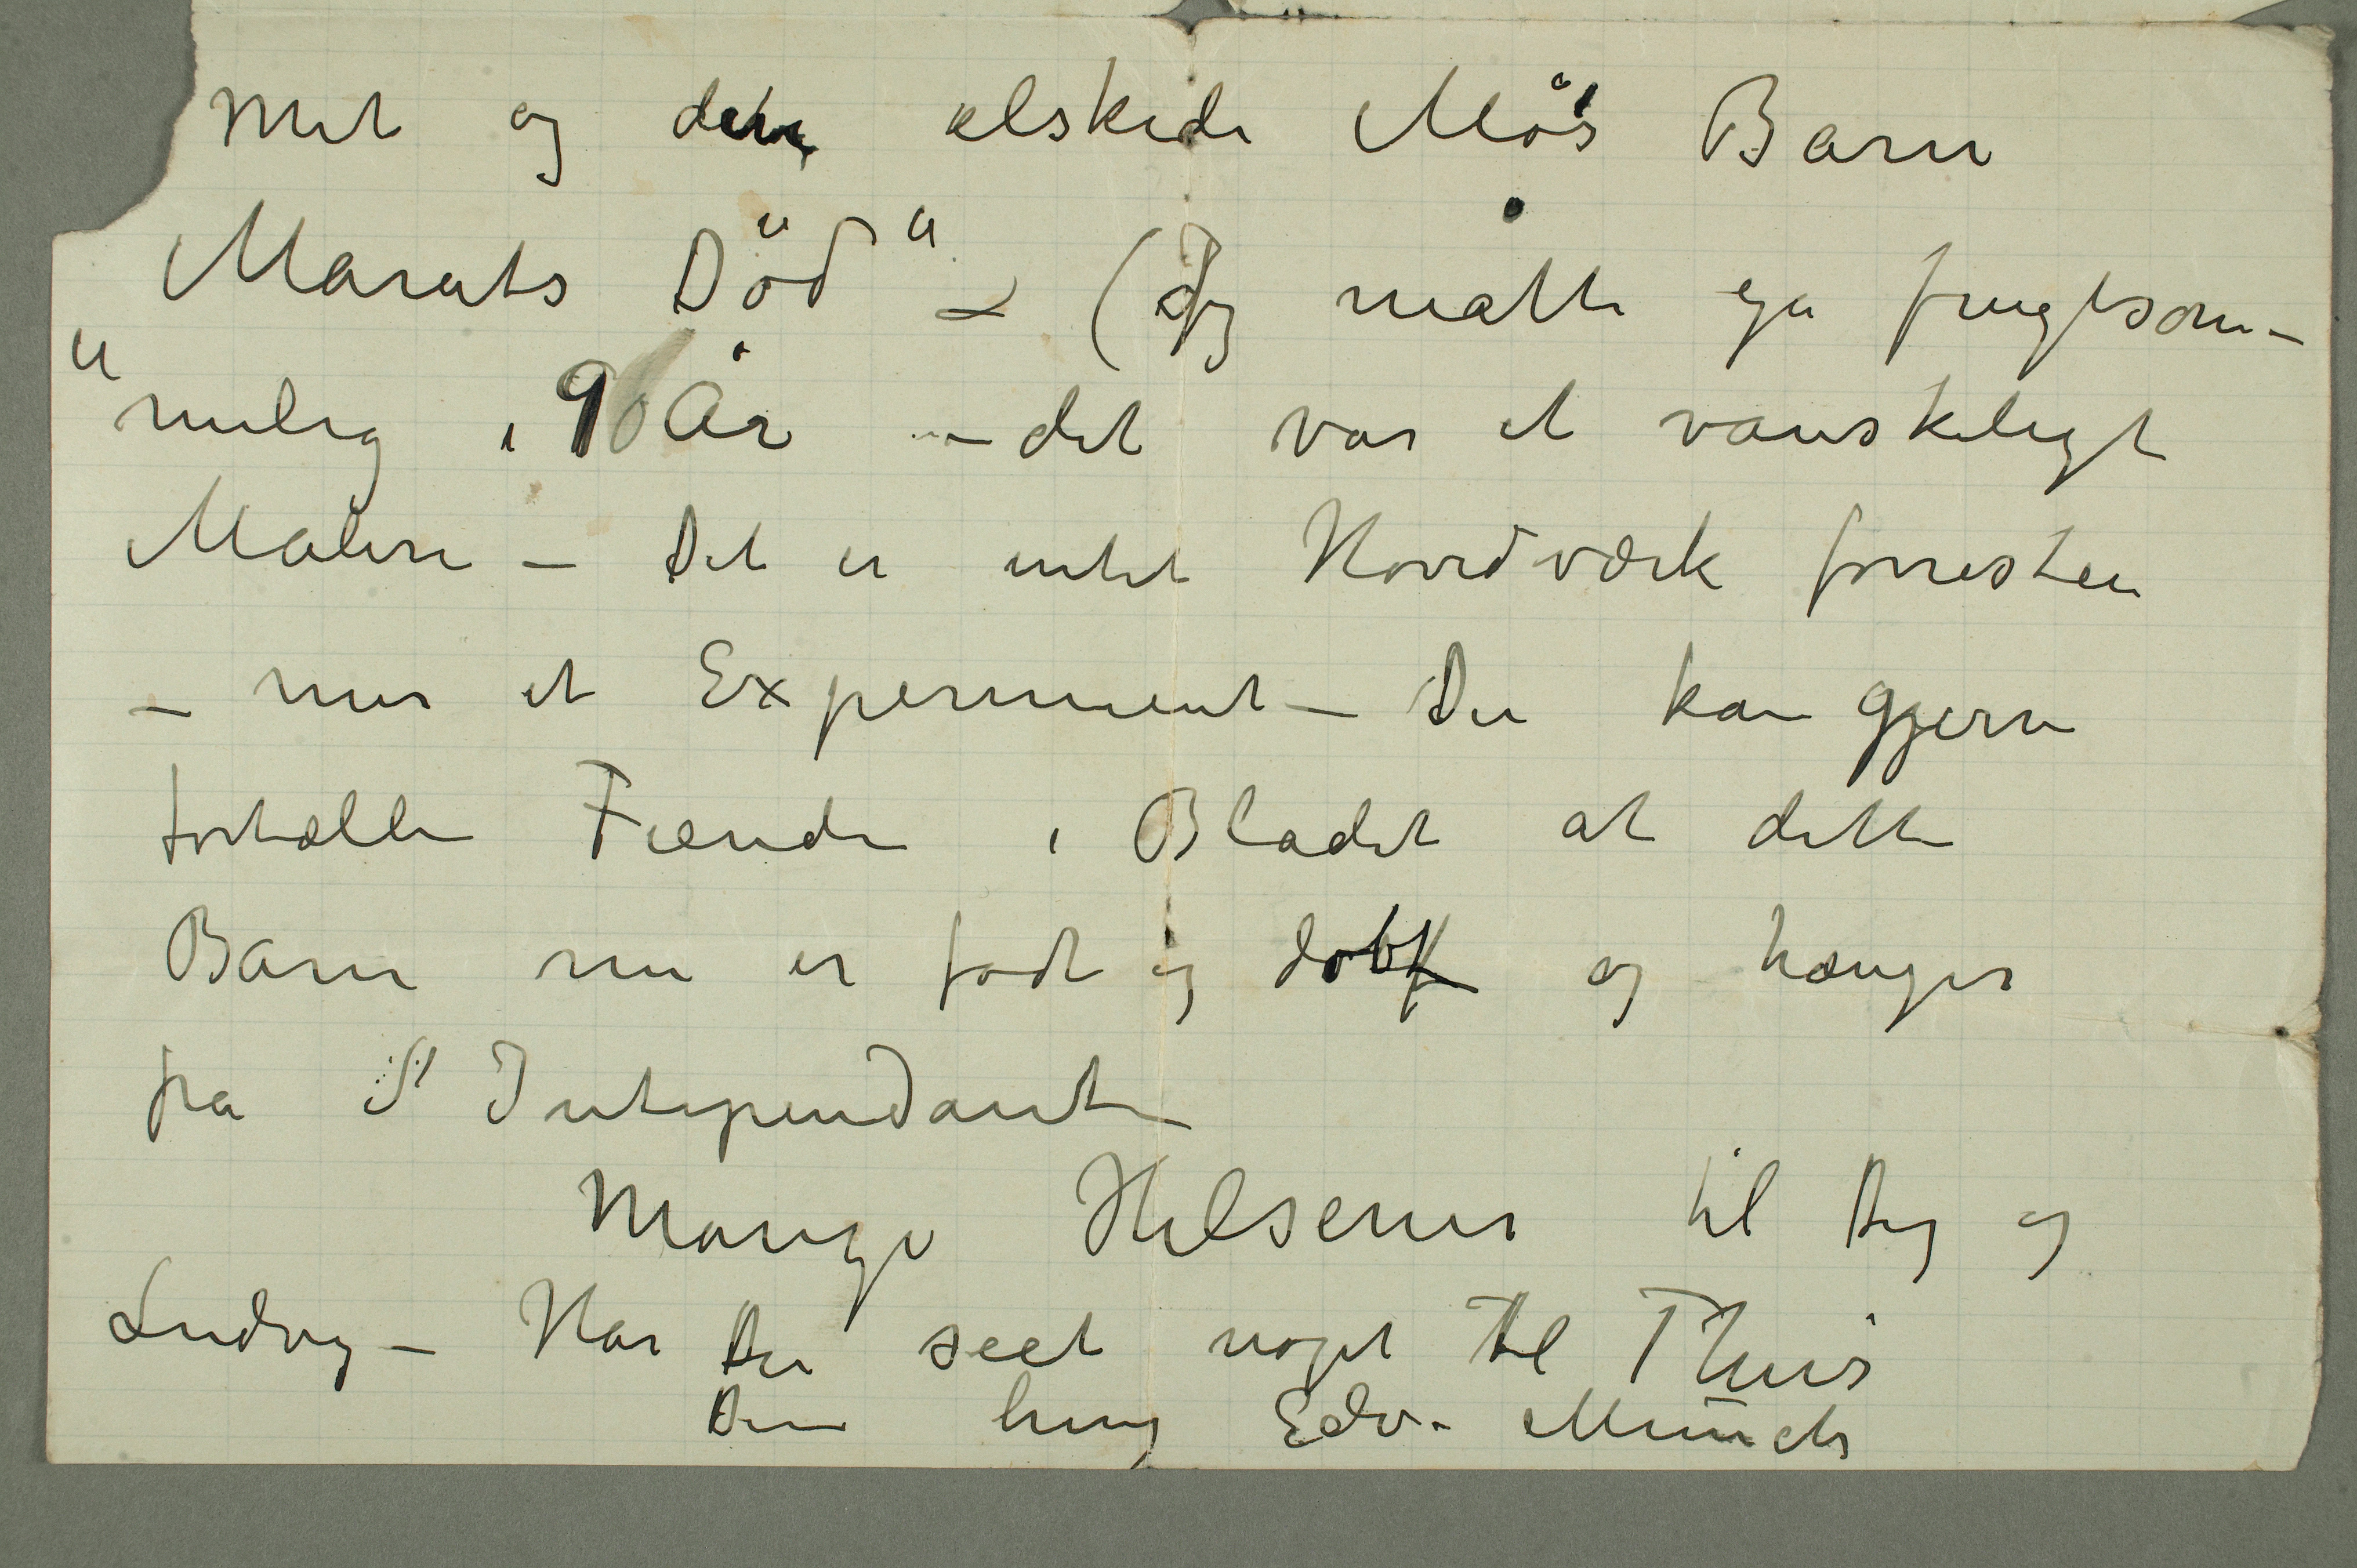 Mit og den elskede Mös Barn
Marats Död“ – (Jeg måtte gå frugtsom-
„melig i 9 År – det var et vanskeligt
Maleri – Det er intet Hovedværk forresten
– mer et Experiment – Du kan gjerne
fortælle Fienden i Bladet at dette
Barn nu er født og døbt og hænger
fra l'Independant
Mange Hilsener til Dig og
Ludvig – Har Du seet noget til Thiis
Din heng Edv. Munch